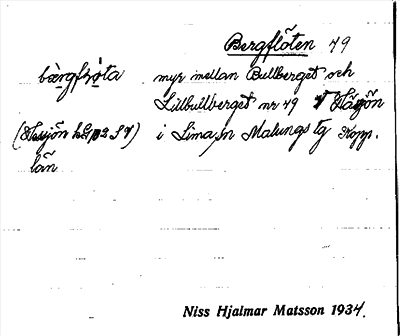 Bergflöten 49
bärgfłöta myr mellan Bullberget och
Lillbullberget nr 49
i Lima sn Malungs tg Kopp.
län
Niss Hjalmar Matsson 1934.